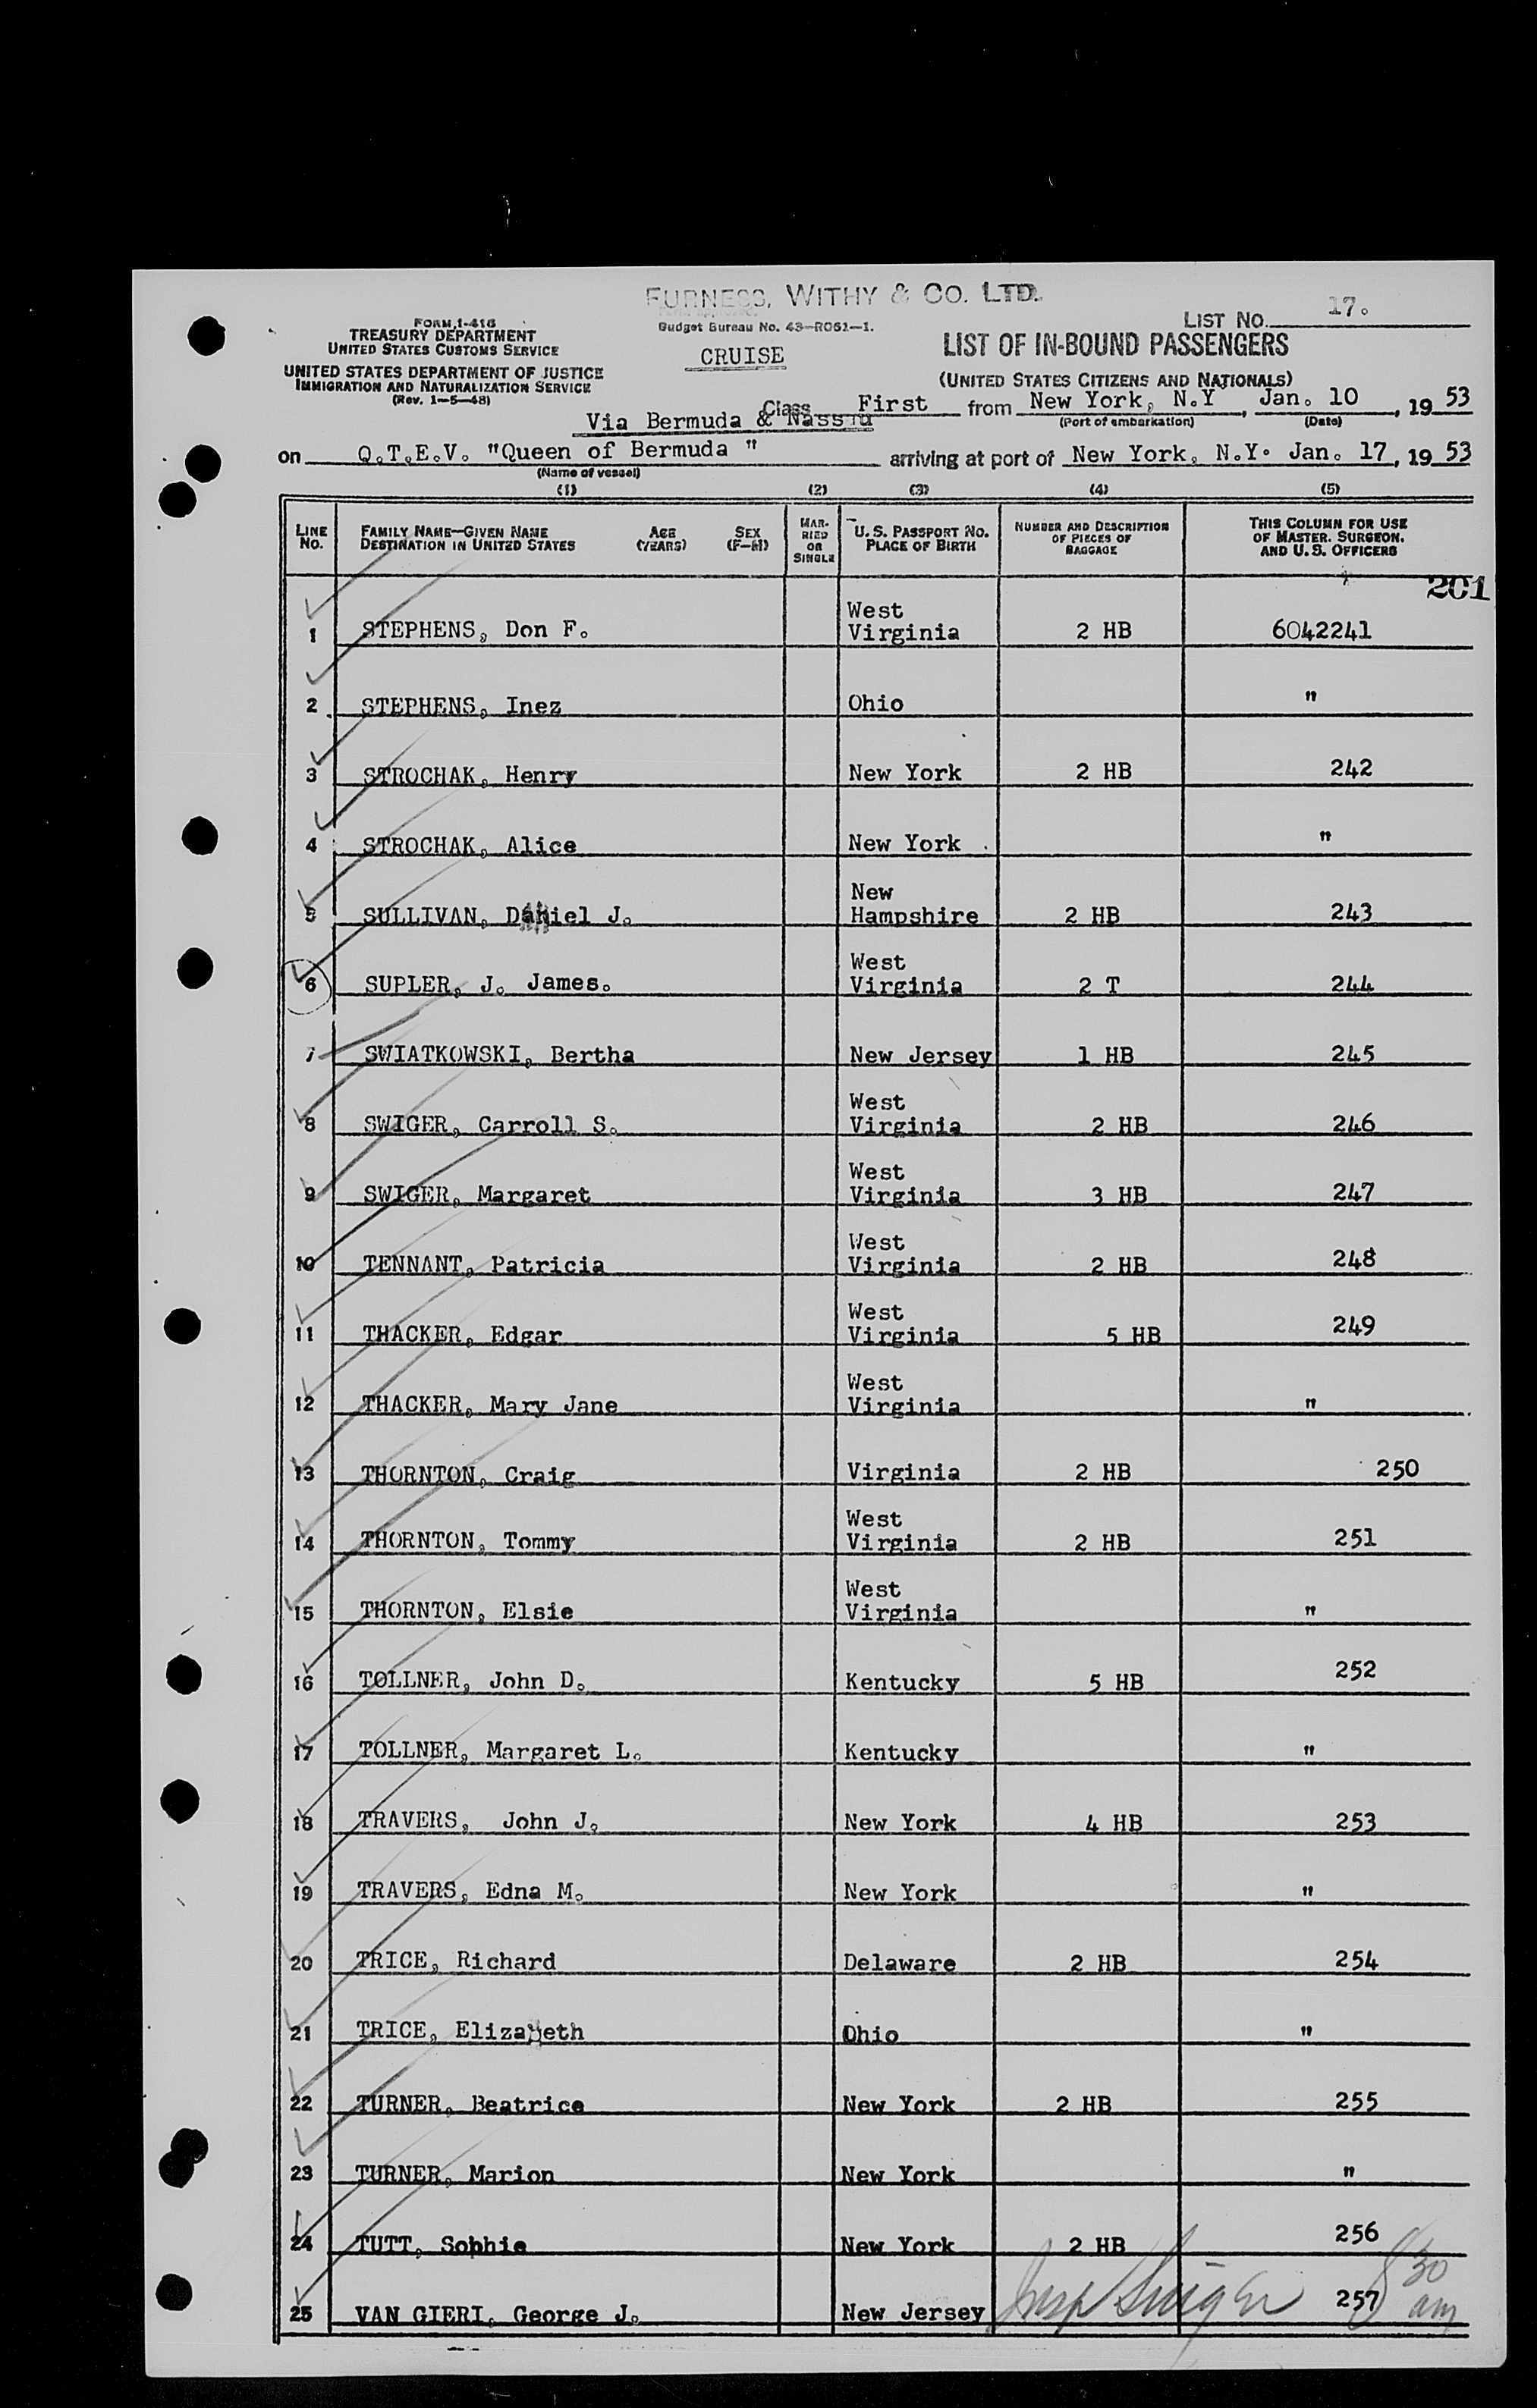 FURNESS, WITHY & CO. LTD.
LIST NO. 17.
FORM I-416
TREASURY DEPARTMENT
UNITED STATES CUSTOMS SERVICE
UNITED STATES DEPARTMENT OF JUSTICE
IMMIGRATION AND NATURALIZATION SERVICE
(Rev. 1-5-48)
Budget Bureau No. 43-R061-1.
CRUISE
LIST OF IN-BOUND PASSENGERS
(UNITED STATES CITIZENS AND NATIONALS)
Class First from New York, N.Y, Jan. 10, 19 53
Via Bermuda & Nassau
(Port of embarkation) (Date)
on Q.T.E.V. "Queen of Bermuda " arriving at port of New York, N.Y. Jan. 17, 19 53
(Name of vessel)
(1) (2) (3) (4) (5)
LINE NO. FAMILY NAME—GIVEN NAME DESTINATION IN UNITED STATES AGE (YEARS) SEX (F-M) MARRIED OR SINGLE U. S. PASSPORT NO. PLACE OF BIRTH NUMBER AND DESCRIPTION OF PIECES OF BAGGAGE THIS COLUMN FOR USE OF MASTER, SURGEON, AND U. S. OFFICERS
201
1 STEPHENS, Don F. West Virginia 2 HB 6042241
2 STEPHENS, Inez Ohio "
3 STROCHAK, Henry New York 2 HB 242
4 STROCHAK, Alice New York "
5 SULLIVAN, Daniel J. New Hampshire 2 HB 243
6 SUPLER, J. James. West Virginia 2 T 244
7 SWIATKOWSKI, Bertha New Jersey 1 HB 245
8 SWIGER, Carroll S. West Virginia 2 HB 246
9 SWIGER, Margaret West Virginia 3 HB 247
10 TENNANT, Patricia West Virginia 2 HB 248
11 THACKER, Edgar West Virginia 5 HB 249
12 THACKER, Mary Jane West Virginia "
13 THORNTON, Craig Virginia 2 HB 250
14 THORNTON, Tommy West Virginia 2 HB 251
15 THORNTON, Elsie West Virginia "
16 TOLLNER, John D. Kentucky 5 HB 252
17 TOLLNER, Margaret L. Kentucky "
18 TRAVERS, John J. New York 4 HB 253
19 TRAVERS, Edna M. New York "
20 TRICE, Richard Delaware 2 HB 254
21 TRICE, Elizabeth Ohio "
22 TURNER, Beatrice New York 2 HB 255
23 TURNER, Marion New York "
24 TUTT, Sophie New York 2 HB 256
25 VAN GIERI, George J. New Jersey 257
8 30 am